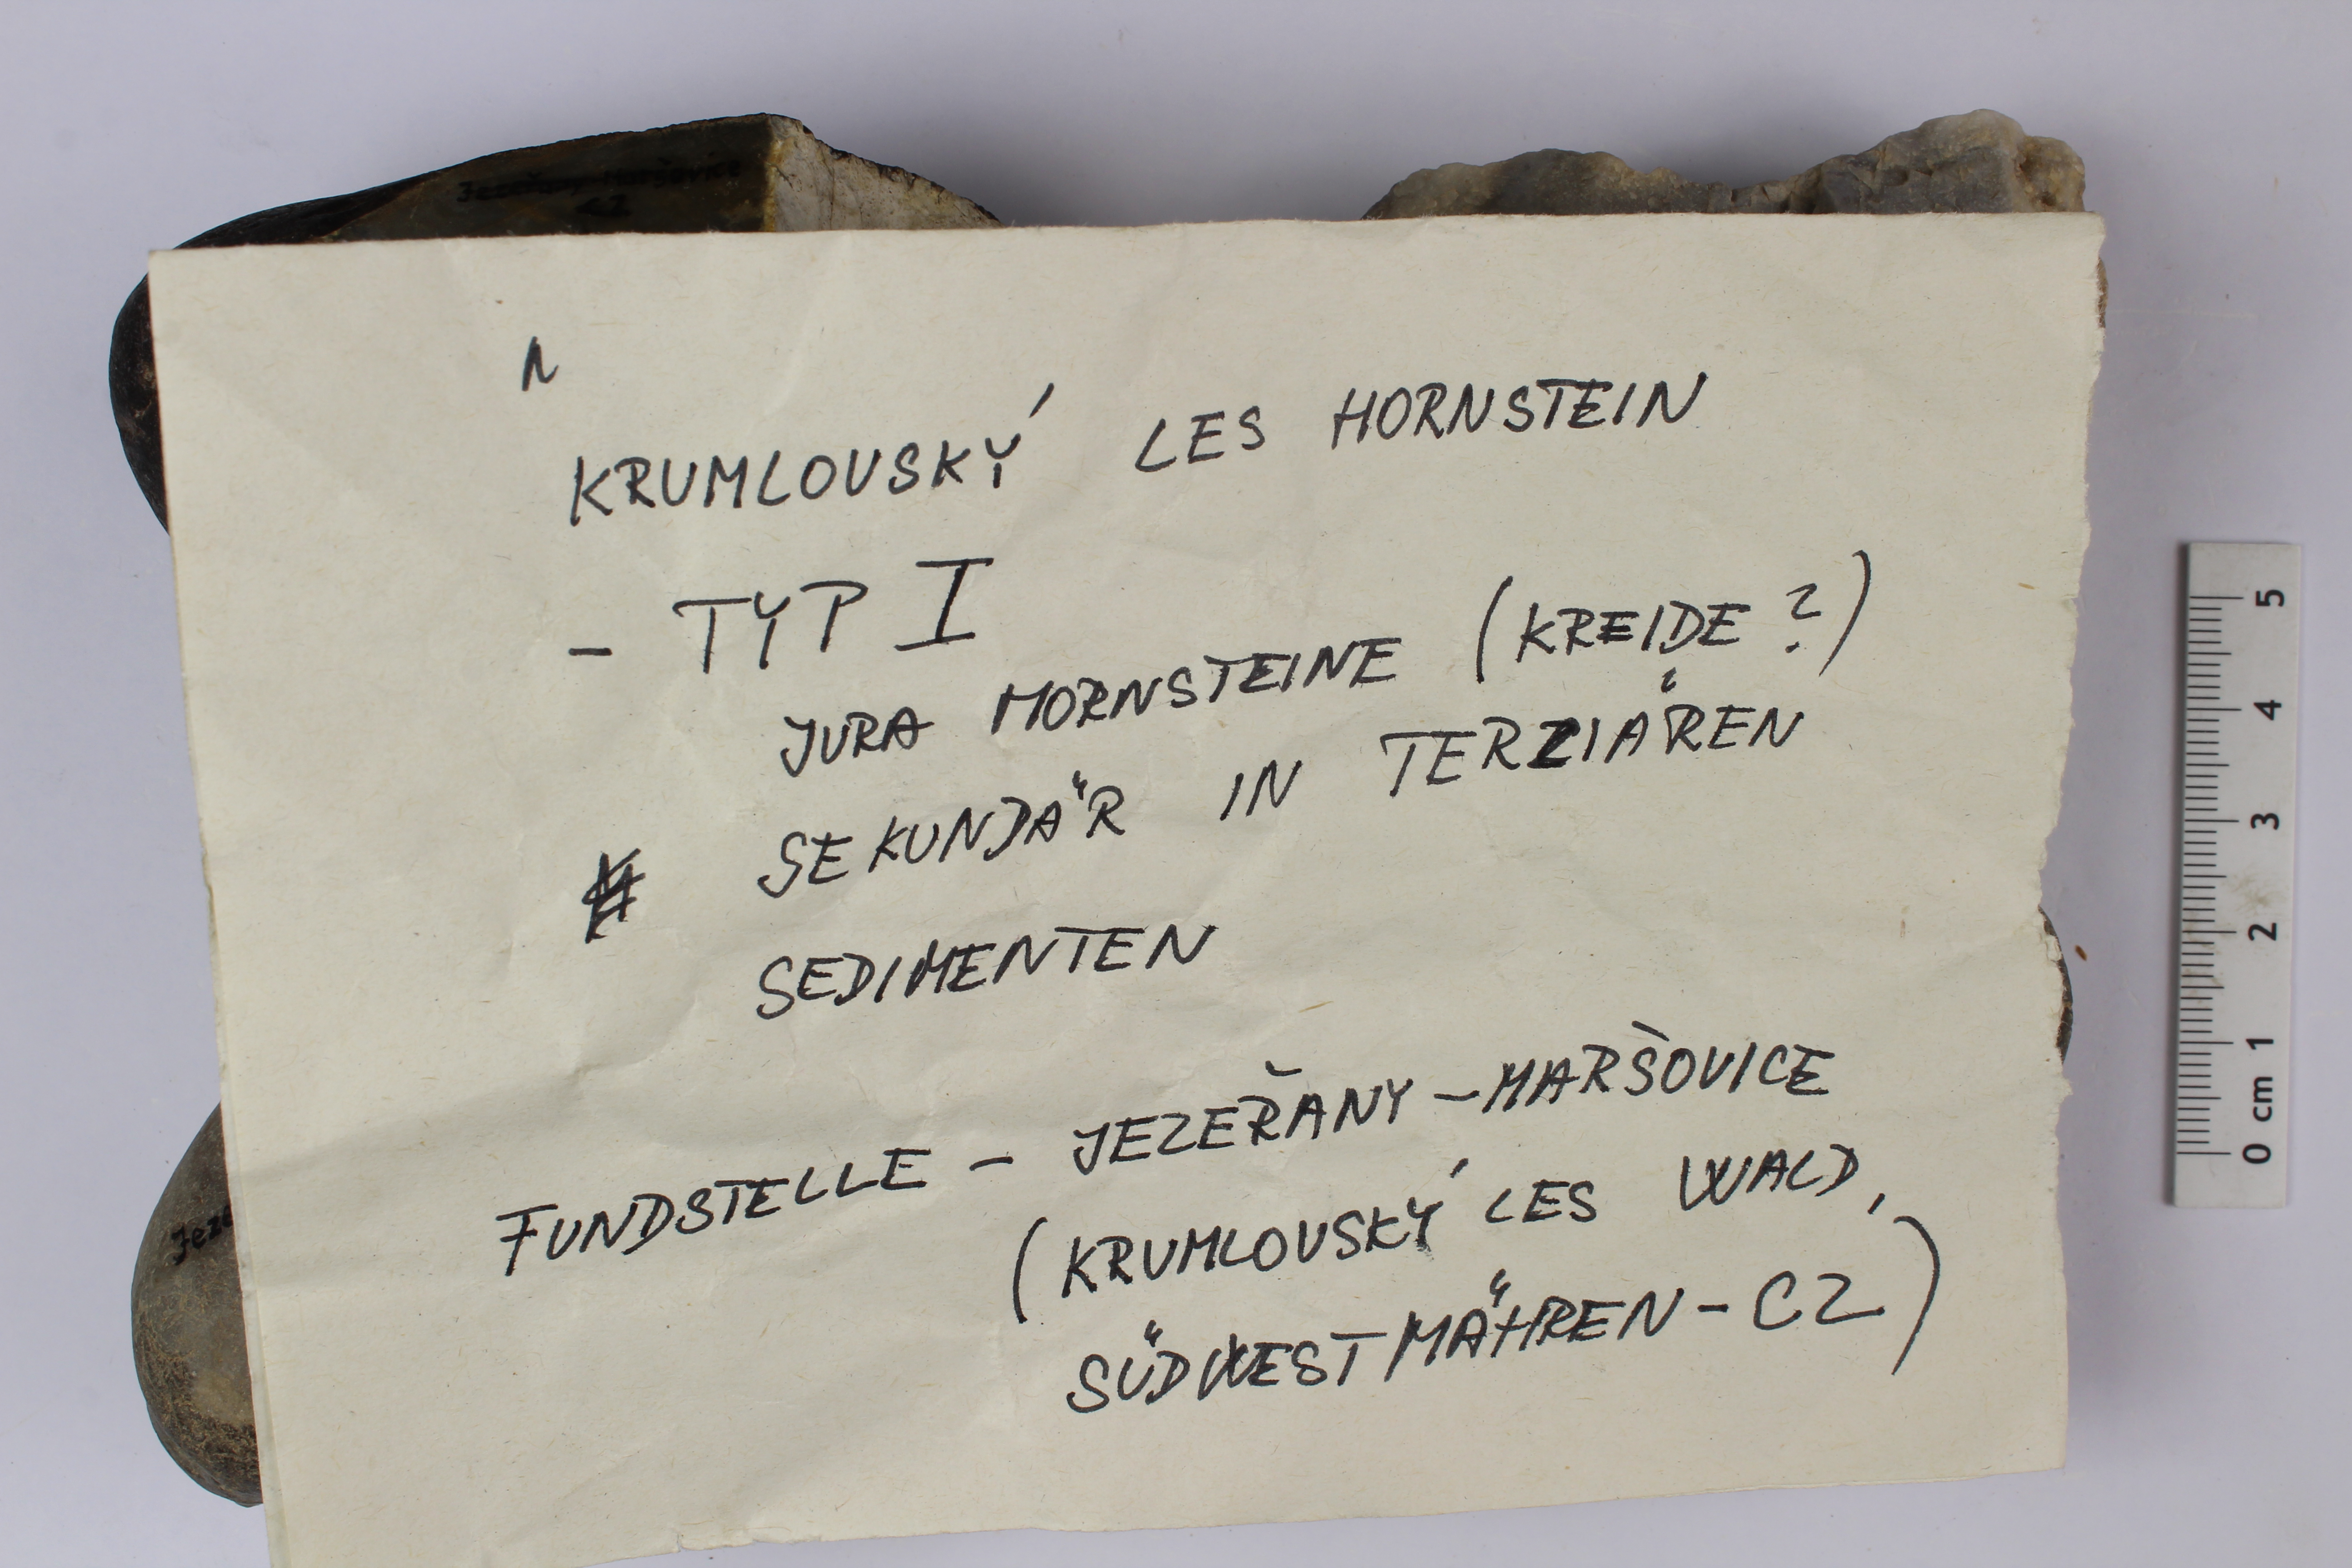 Jezeřany-Maršovice
CZ
KRUMLOVSKÝ LES HORNSTEIN
- TYP I
JURA HORNSTEINE (KREIDE ?)
SEKUNDÄR IN TERZIÄREN
SEDIMENTEN
FUNDSTELLE - JEZEŘANY-MARŠOVICE
(KRUMLOVSKÝ LES WALD,
SÜDWESTMÄHREN-CZ)
Jeze
0 cm 1 2 3 4 5